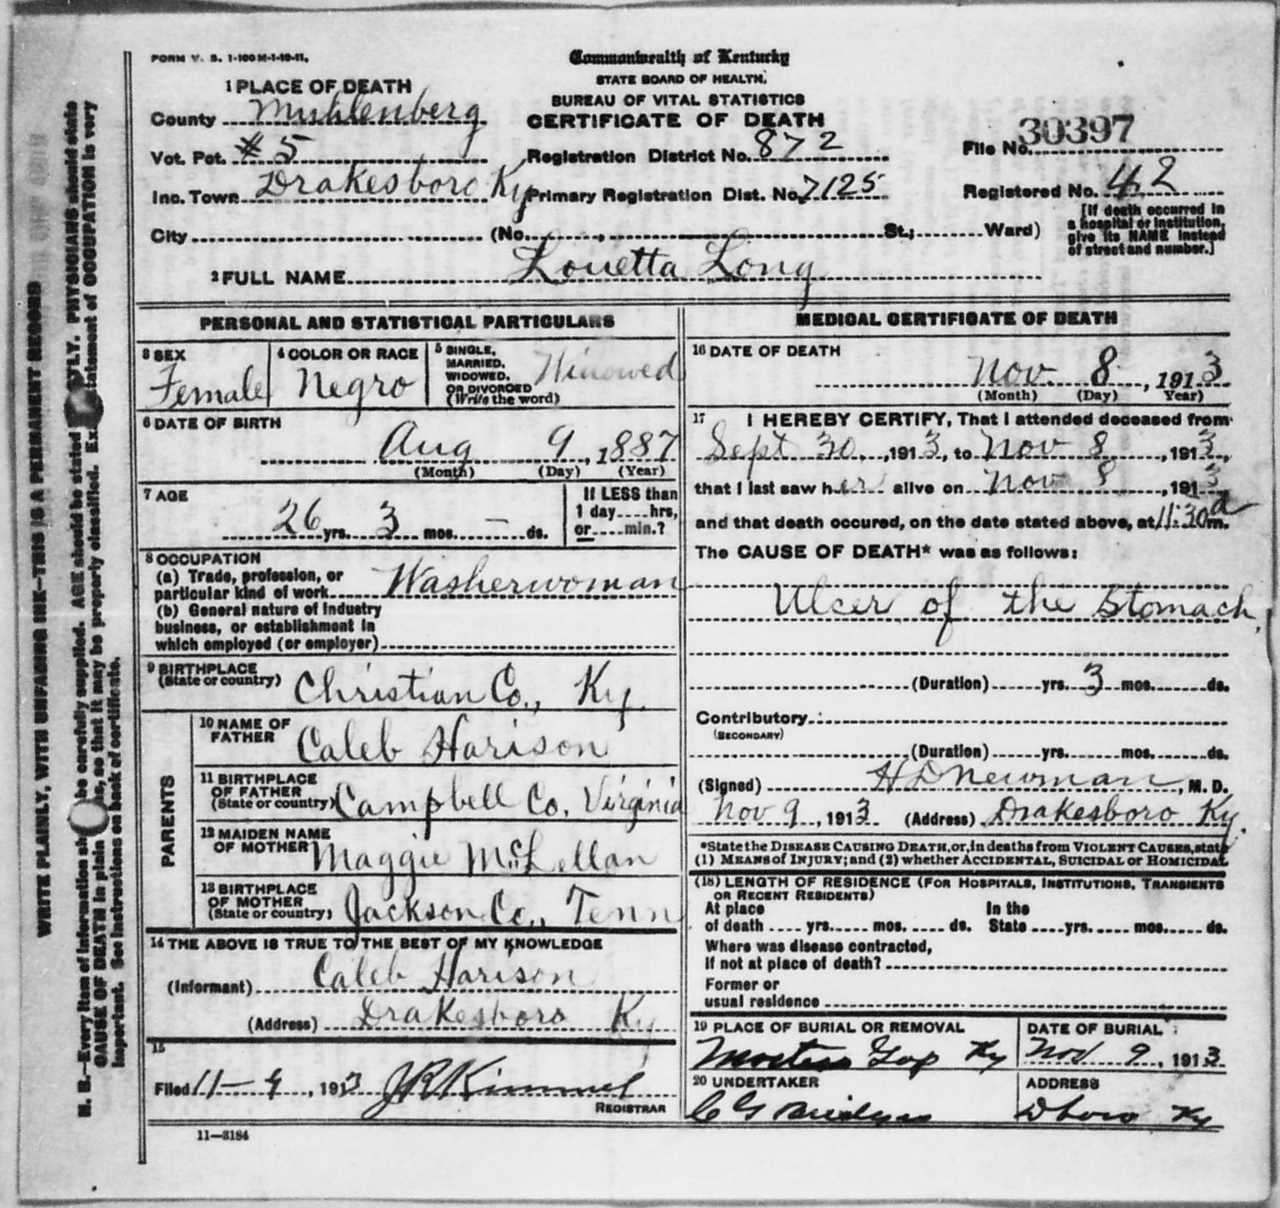 FORM V. S. 1-100 M-1-19-11.
Commonwealth of Kentucky
STATE BOARD OF HEALTH.
BUREAU OF VITAL STATISTICS
CERTIFICATE OF DEATH
1 PLACE OF DEATH
County Muhlenberg
Vot. Pct. #5
Registration District No. 872
File No. 30397
Inc. Town Drakesboro Ky
Primary Registration Dist. No. 7125
Registered No. 42
City (No. St.; Ward)
[If death occurred in
a hospital or institution,
give its NAME instead
of street and number.]
2 FULL NAME Louetta Long
PERSONAL AND STATISTICAL PARTICULARS
3 SEX
Female
4 COLOR OR RACE
Negro
5 SINGLE,
MARRIED,
WIDOWED,
OR DIVORCED
(Write the word)
Widowed
6 DATE OF BIRTH
Aug 9, 1887
(Month) (Day) (Year)
7 AGE
26 yrs. 3 mos. — ds.
If LESS than
1 day....hrs,
or....min.?
8 OCCUPATION
(a) Trade, profession, or
particular kind of work Washerwoman
(b) General nature of industry
business, or establishment in
which employed (or employer)
9 BIRTHPLACE
(State or country) Christian Co., Ky.
PARENTS
10 NAME OF
FATHER Caleb Harison
11 BIRTHPLACE
OF FATHER
(State or country) Campbell Co. Virginia
12 MAIDEN NAME
OF MOTHER Maggie McLellan
13 BIRTHPLACE
OF MOTHER
(State or country) Jackson Co., Tenn
14 THE ABOVE IS TRUE TO THE BEST OF MY KNOWLEDGE
(Informant) Caleb Harison
(Address) Drakesboro Ky
15
Filed 11-9, 1913 JR Kimmel
REGISTRAR
11-3184
MEDICAL CERTIFICATE OF DEATH
16 DATE OF DEATH
Nov. 8, 1913
(Month) (Day) Year)
17 I HEREBY CERTIFY, That I attended deceased from
Sept 30, 1913, to Nov 8, 1913,
that I last saw her alive on Nov 8, 1913
and that death occured, on the date stated above, at 11:30 a m.
The CAUSE OF DEATH* was as follows:
Ulcer of the Stomach,
(Duration) yrs. 3 mos. ds.
Contributory
(SECONDARY)
(Duration) yrs. mos. ds.
(Signed) H D Newman, M. D.
Nov 9, 1913 (Address) Drakesboro Ky.
*State the DISEASE CAUSING DEATH, or, in deaths from VIOLENT CAUSES, state
(1) MEANS of INJURY; and (2) whether ACCIDENTAL, SUICIDAL or HOMICIDAL
(18) LENGTH OF RESIDENCE (FOR HOSPITALS, INSTITUTIONS, TRANSIENTS
OR RECENT RESIDENTS)
At place In the
of death .... yrs..... mos. .... ds. State ....yrs..... mos..... ds.
Where was disease contracted,
If not at place of death?
Former or
usual residence
19 PLACE OF BURIAL OR REMOVAL
Gap Ky
DATE OF BURIAL
Nov 9, 1913
20 UNDERTAKER
C G
ADDRESS
Dboro Ky
WRITE PLAINLY, WITH UNFADING INK—THIS IS A PERMANENT RECORD
N. B.—Every item of information should be carefully supplied. AGE should be stated EXACTLY. PHYSICIANS should state
CAUSE OF DEATH in plain terms, so that it may be properly classified. Exact statement of OCCUPATION is very
important. See instructions on back of certificate.